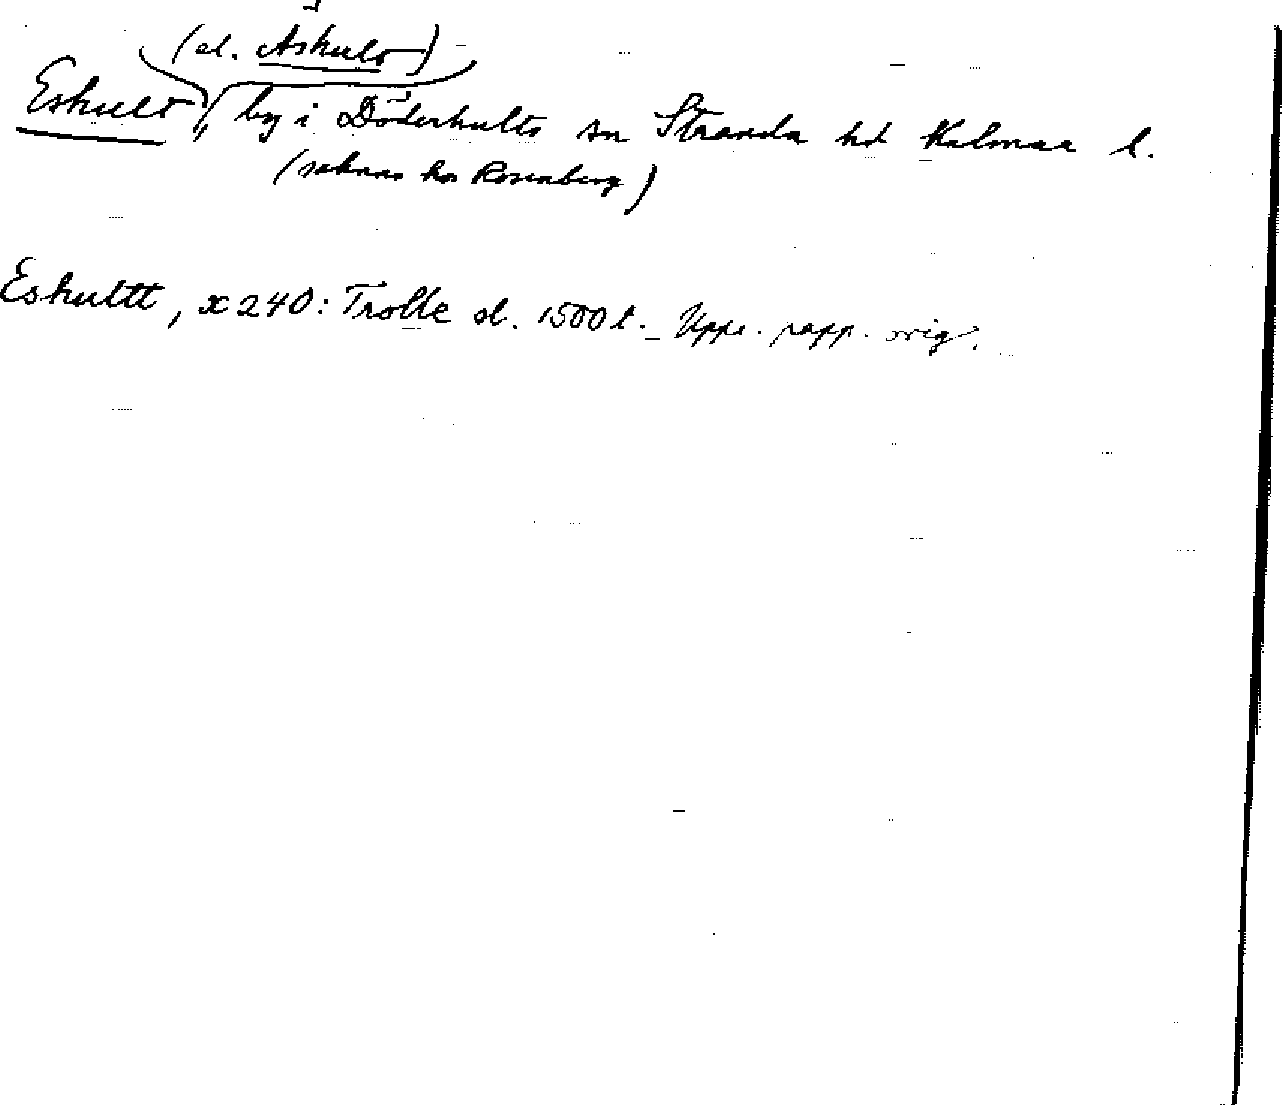 (el. Äskult)
Eskult, by i Döderhults sn Stranda hd Kalmar l.
(saknas hos Rosenberg)
Eskultt, x 240: Trolle sl. 1500 t. Upps. papp. orig.